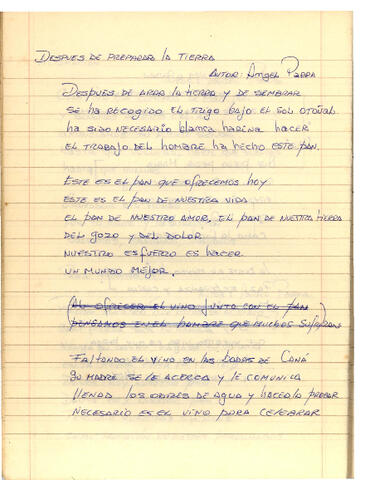 DESPUES DE PREPARAR LA TIERRA
AUTOR: ANGEL PARRA
DESPUÉS DE ARAR LA TIERRA Y DE SEMBRAR
SE HA RECOGIDO EL TRIGO BAJO EL SOL OTOÑAL
HA SIDO NECESARIO BLANCA HARINA HACER
EL TRABAJO DEL HOMBRE HA HECHO ESTE PAN.
ESTE ES EL PAN QUE OFRECEMOS HOY
ESTE ES EL PAN DE NUESTRA VIDA
EL PAN DE NUESTRO AMOR, EL PAN DE NUESTRA TIERRA
DEL GOZO Y DEL DOLOR
NUESTRO ESFUERZO ES HACER
UN MUNDO MEJOR.
(AL OFRECER EL VINO JUNTO CON EL PAN
PENSAMOS EN EL HOMBRE QUE MUCHOS SUFRIRAN)
FALTANDO EL VINO EN LAS BODAS DE CANÁ
SU MADRE SE LE ACERCA Y LE COMUNICA
LLENAD LOS ODRES DE AGUA Y HACERLA PROBAR
NECESARIO ES EL VINO PARA CELEBRAR